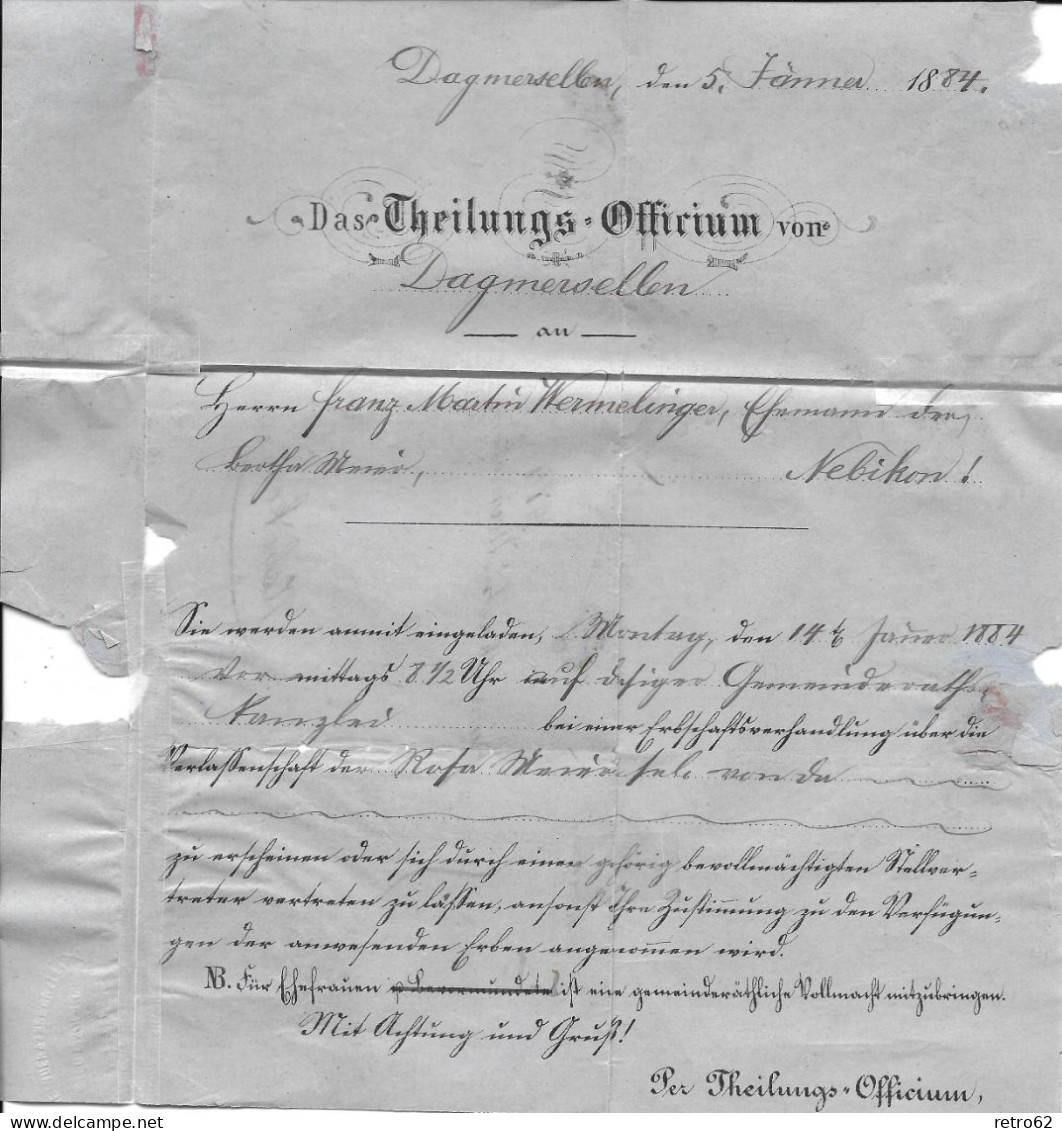 Dagmersellen, den 5. Jänner 1884.
Das Theilungs-Officium von
Dagmersellen
an
Herrn Franz Martin Wermelinger, Ehemann der
Bertha Meier, Nebikon!
Sie werden anmit eingeladen, Montag, den 14. Jänner 1884
Vor mittags 8 1/2 Uhr auf dasiger Gemeinderaths
Kanzlei bei einer Erbschaftsverhandlung über die
Verlassenschaft der Rosa Meier sel. von da
zu erscheinen oder sich durch einen gehörig bevollmächtigten Stellver-
treter vertreten zu lassen, ansonst Ihre Zustimmung zu den Verfügun-
gen der anwesenden Erben angenommen wird.
NB. Für Ehefrauen u Bevormundete ist eine gemeinderäthliche Vollmacht mitzubringen.
Mit Achtung und Gruß!
Per Theilungs-Officium,
retro62